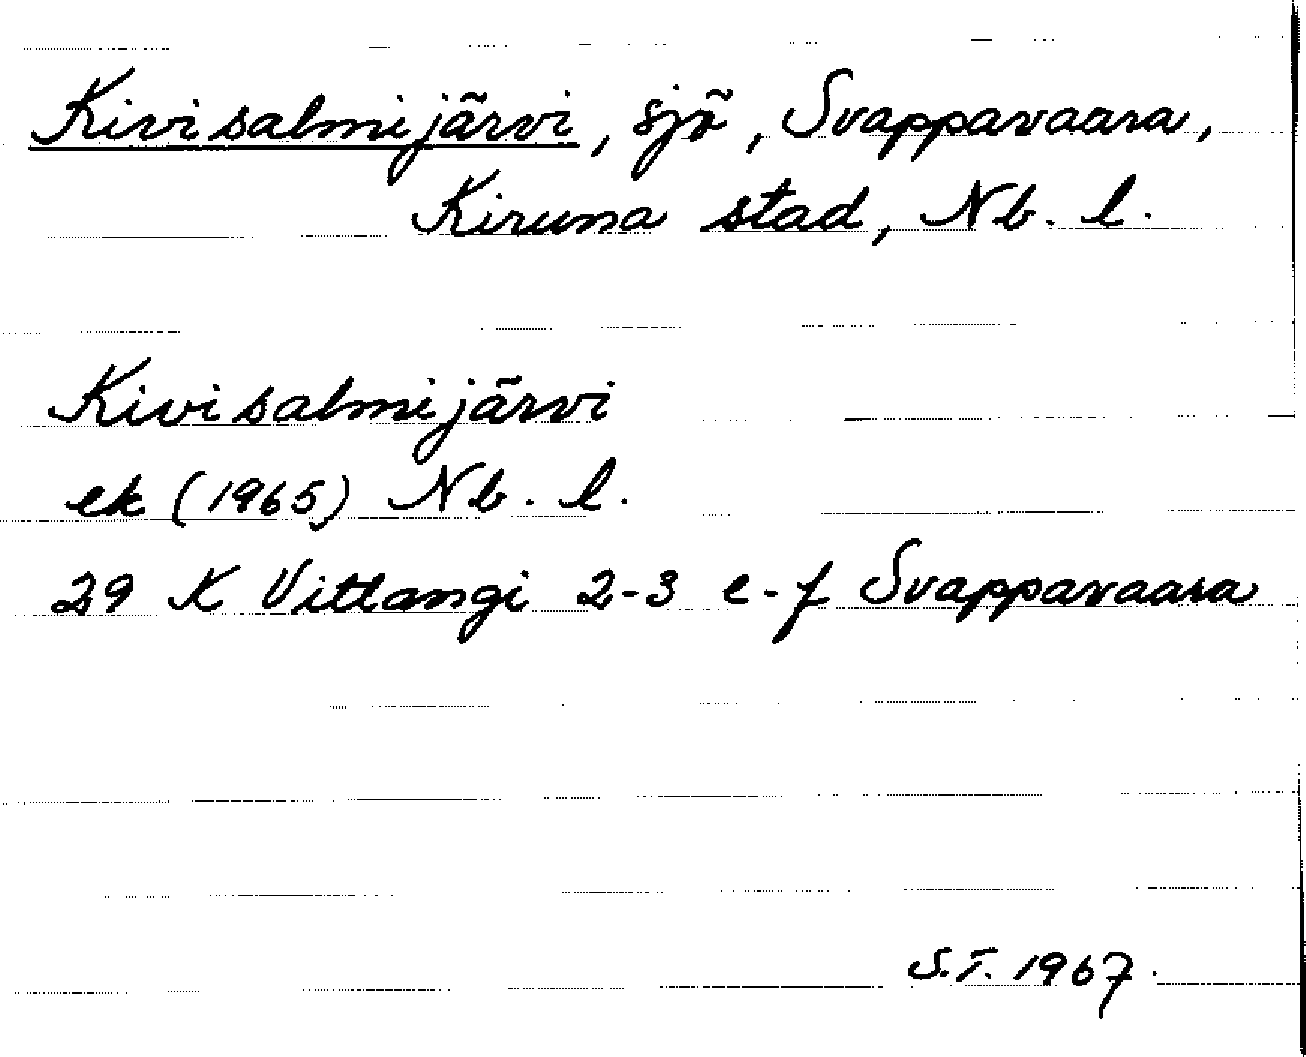 Kivisalmijärvi, sjö, Svappavaara,
Kiruna stad, Nb. l.
Kivisalmijärvi
ek (1965) Nb. l.
29 K Vittangi 2-3 e-f Svappavaara
S.T. 1967.